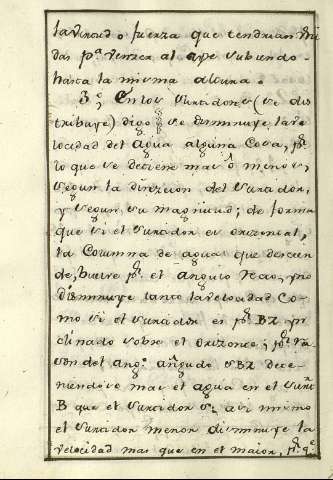 la virtud o fuerza que tendrian uni
das p.ª vencer al ayre subiendo
hasta la misma altura.
3.º En los Surtidores (se dis
tribuye) digo se disminuye la ve
locidad del agua alguna Cosa, p.r
lo que se detiene mas ô menos,
segun la direzcion del Surtidor,
y segun su magnitud; de forma
que si el Surtidor es orizontal,
la Columna de agua que descien
de, buelve p.r el angulo recto, y no
disminuye tanto la velocidad Co
mo si el Surtidor es p.r BZ, yn
clinado sobre el orizonte; p.r ra
son del ang.º agudo SBZ dete
niendose mas el agua en el Surt.r
B que el Surtidor S; asi mismo
el Surtidor menor disminuye la
velocidad mas que en el maior, p.r q.e